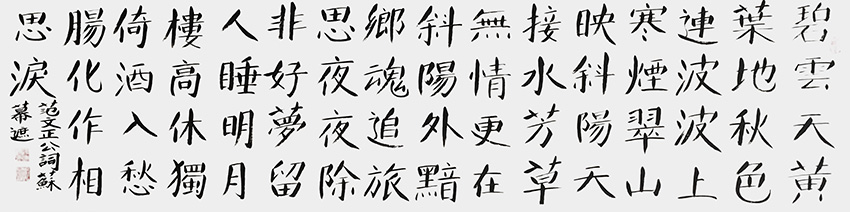 碧雲天黄
葉地秋色
連波波上
寒煙翠山
映斜陽天
接水芳草
無情更在
斜陽外黯
鄉魂追旅
思夜夜除
非好夢留
人睡明月
樓高休獨
倚酒入愁
腸化作相
思淚
范文正公詞蘇
幕遮